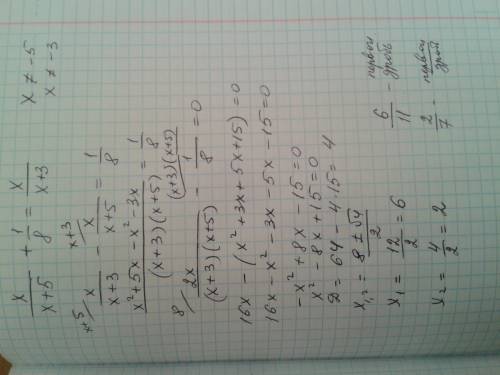 x/(x+5) + 1/8 = x/(x+3)    x ≠ -5
x ≠ -3
x+5/ x/(x+3) - x+3/ x/(x+5) = 1/8
(x²+5x-x²-3x)/((x+3)(x+5)) = 1/8
8/ 2x/((x+3)(x+5)) - (x+3)(x+5)/ 1/8 = 0
16x - (x²+3x+5x+15) = 0
16x - x² - 3x - 5x - 15 = 0
-x² + 8x - 15 = 0
x² - 8x + 15 = 0
D = 64 - 4·15 = 4
x₁,₂ = (8 ± √4)/2
x₁ = 12/2 = 6    6/11 - первон дробь
x₂ = 4/2 = 2    2/7 - первон дроб